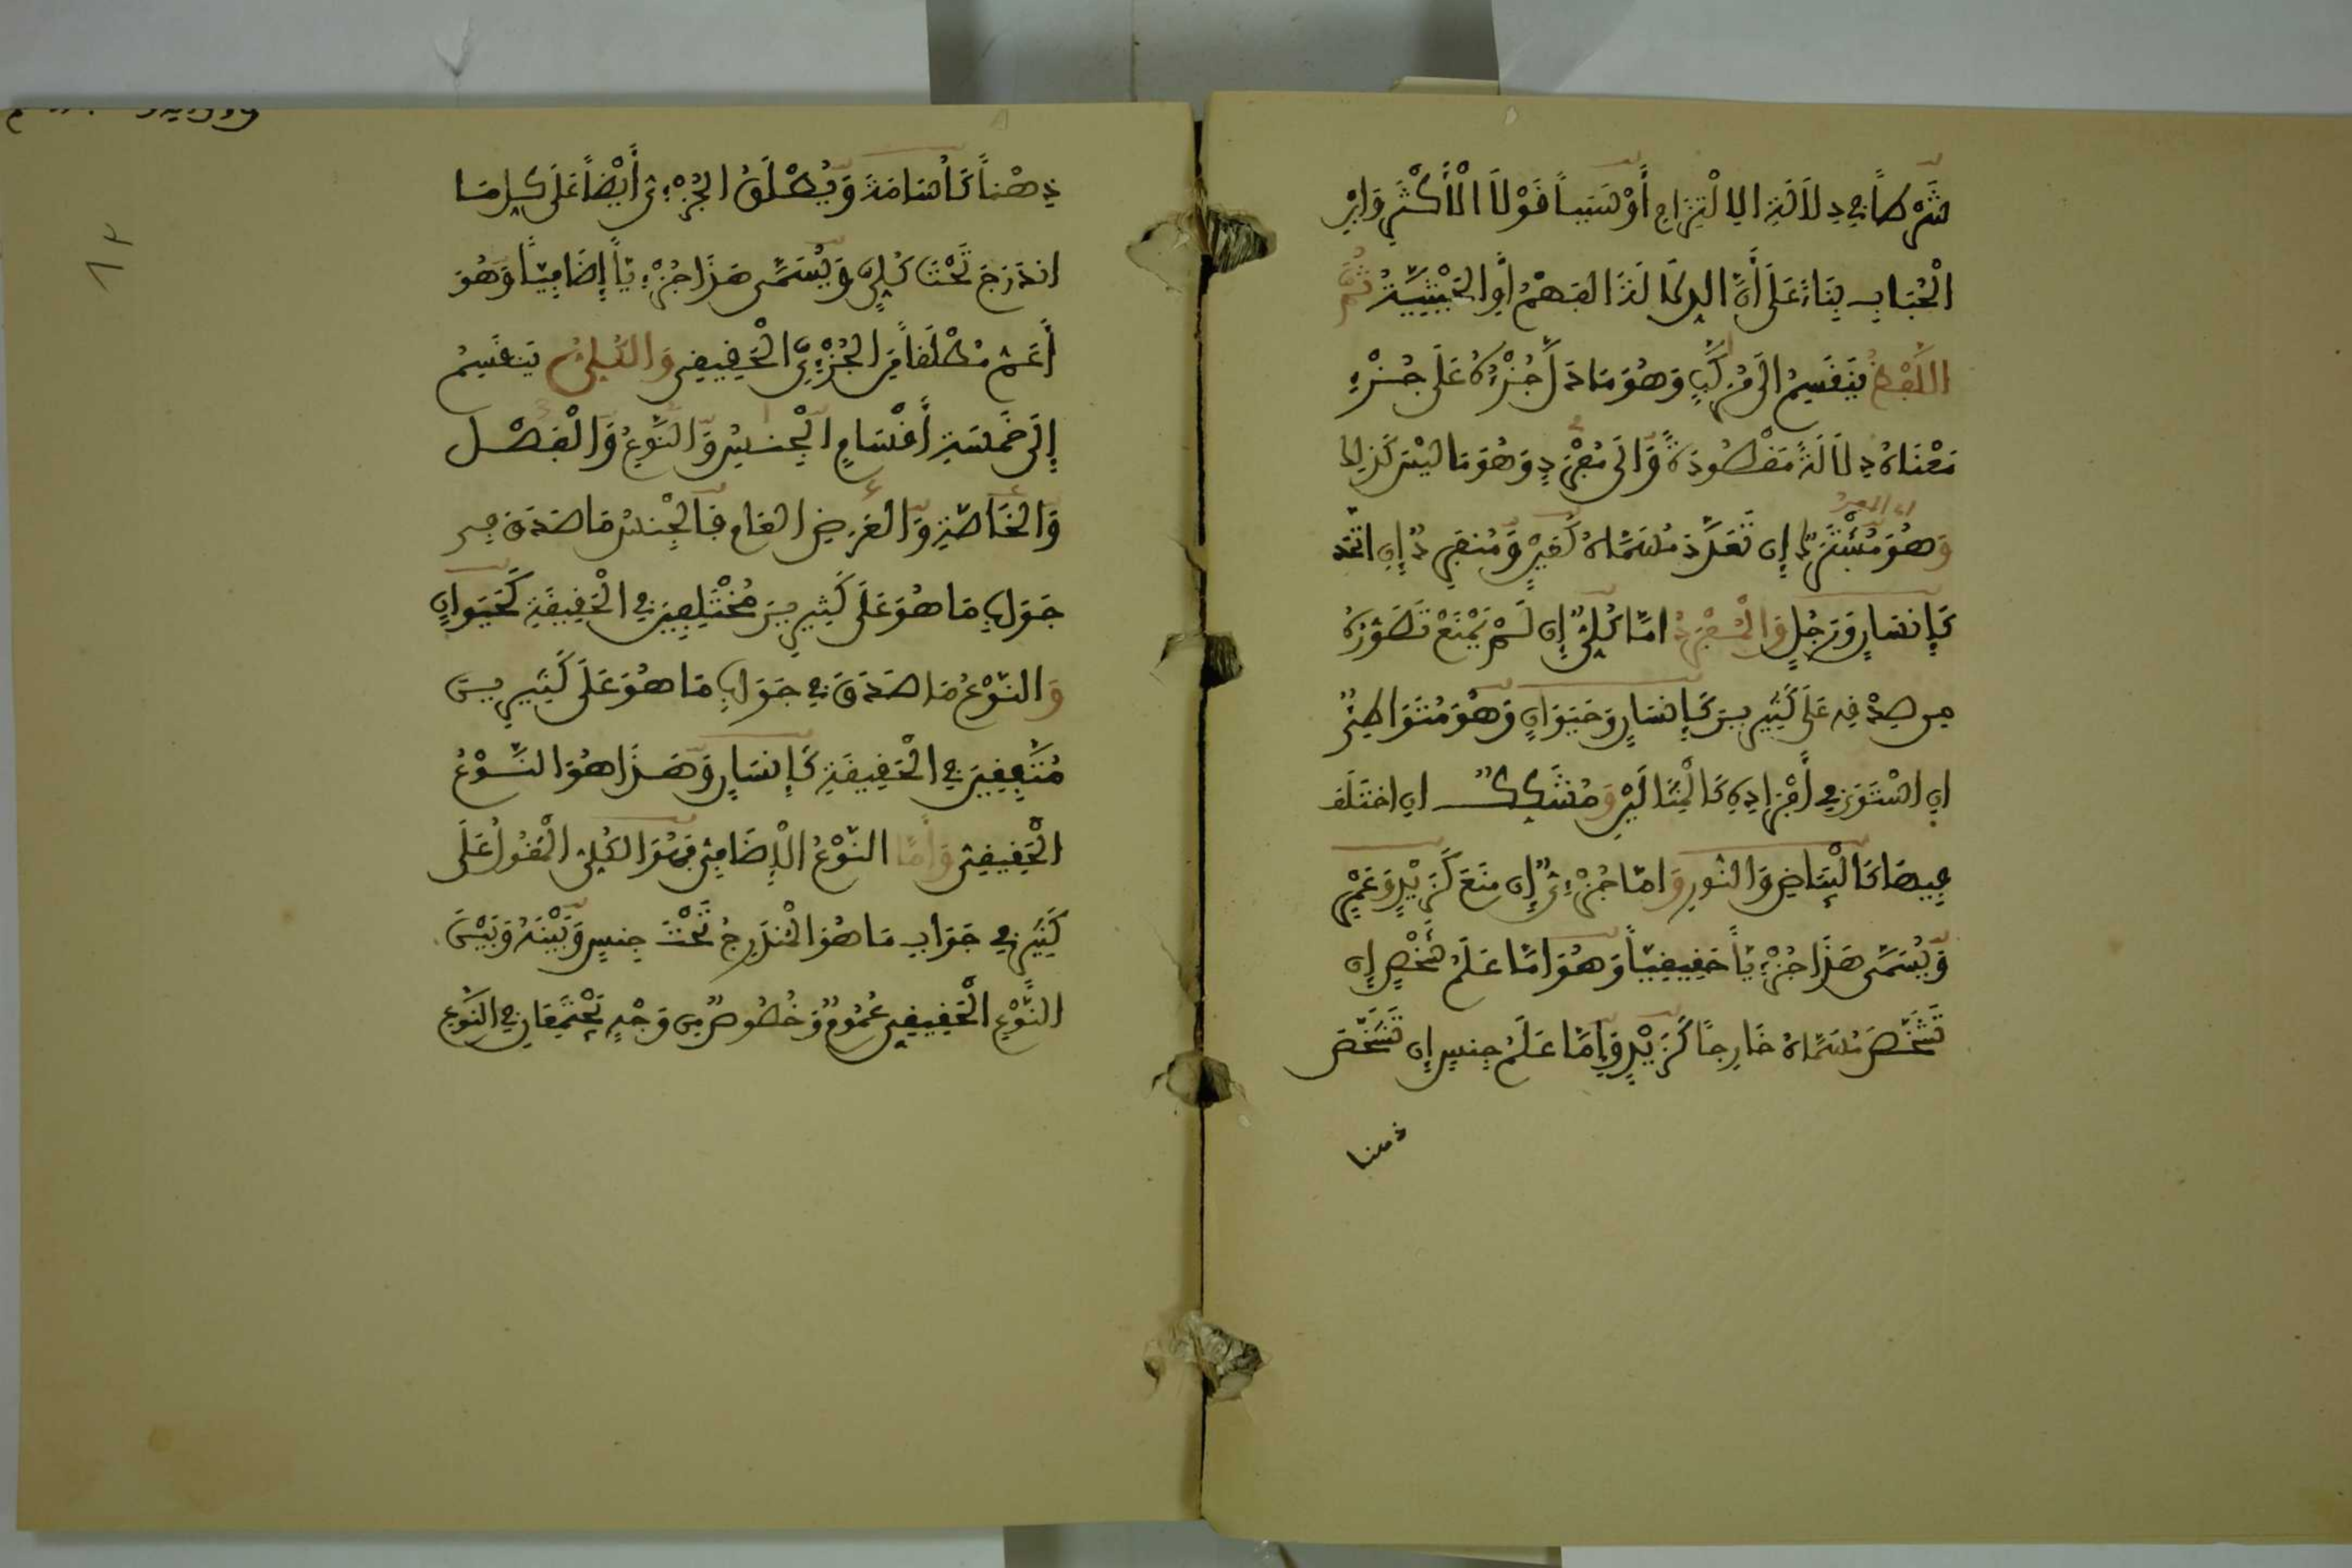 شَرْطاً فِي دِلَالَةِ الِالْتِزَامِ أَوْ سَبَباً قَوْلَا الْأَكْثَرِ وَابْنِ
الْحُبَابِ بِنَاءً عَلَى أَنَّ الدِّلَالَةَ الفَهْمُ أَوِ الحَيْثِيَّةُ ثُمَّ
اللَّفْظُ يَنقَسِمُ الَى مُرَكَّبٍ وَهُوَ مَا دَلَّ جُزْؤُهُ عَلَى جُزْءِ
مَعْنَاهُ دِلَالَةً مَقْصُودَةً وَّالَى مُفْرَدٍ وَهُوَ مَا لَيْسَ كَذلِكَ
اي المفرد
وَهُوَ مُشْتَرَكٌ إِن تَعَدَّدَ مُسَمَّاهُ كَعَيْنٍ وَّمُنفَرِدٌ إِنِ اتَّحَدَ
كَإِنسَانٍ وَرَجُلٍ وَالْمُفْرَدُ امَّا كُلِّيٌّ إِن لَمْ يَمْنَعْ تَصَوُّرُهُ
مِن صِدْقِهِ عَلَى كَثِيرِينَ كَإِنسَانٍ وَحَيَوَانٍ وَهُوَ مُتَوَاطِئٌ
انِ اسْتَوَى فِي أَفْرَادِهِ كَالْمِثَالَيْنِ وَمُشَكِّكٌ انِ اخْتَلَفَ
فِيهَا كَالْبَيَاضِ وَالنُّورِ وَامَّا جُزْءِيٌّ إِن مَنَعَ كَزَيْدٍ وَعَمْرٍو
وَّيُسَمَّى هَذَا جُزْءِيّاً حَقِيقِيّاً وَهُوَ امَّا عَلَمُ شَخْصٍ إِن
تَشَخَّصَ مُسَمَّاهُ خَارِجاً كَزَيْدٍ وَّإِمَّا عَلَمُ جِنسٍ إِن تَشَخَّصَ
ذهنا
ذِهْناً كَأُسَامَةَ وَّيُطْلَقُ الجُزْءِيُّ أَيْضاً عَلَى كُلِّ مَا
انْدَرَجَ تَحْتَ كُلِّيٍّ وَّيُسَمَّى هَذَا جُزْءِيّاً إِضَافِيّاً وَهُوَ
أَعَمُّ مُطْلَقاً مِنَ الجُزْءِيِّ الْحَقِيقِي وَالكُلِّيُّ يَنقَسِمُ
إِلَى خَمْسَةِ أَقْسَامٍ الْجِنسِ وَّالنَّوْعِ وَّالْفَصْلِ
وَّالخَاصَّةِ وَّالعَرَضِ العَامِ فَالْجِنسُ مَا صَدَقَ فِي
جَوَابِ مَا هُوَ عَلَى كَثِيرِينَ مُخْتَلِفِينَ فِي الْحَقِيقَةِ كَحَيَوَانٍ
وَالنَّوْعُ مَا صَدَقَ فِي جَوَابِ مَا هُوَ عَلَى كَثِيرِينَ
مُتَّفِقِينَ فِي الْحَقِيقَةِ كَإِنسَانٍ وَّهَذَا هُوَ النَّوْعُ
الْحَقِيقِيُّ وَأَمَّا النَّوْعُ الْإِضَافِيُّ فَهُوَ الكُلِّيُّ الْمَقُولُ عَلَى
كَثِيرٍ فِي جَوَابِ مَا هُوَ الْمُنْدَرِجُ تَحْتَ جِنسٍ وَّبَيْنَهُ وَبَيْنَ
النَّوْعِ الْحَقِيقِي عُمُومٌ وَّخُصُوصٌ مِن وَجْهٍ يَجْتَمِعَانِ فِي النَّوْعِ